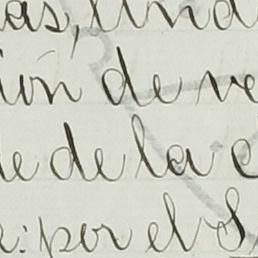 as, una
ión de ve
ue de la c
: por el S